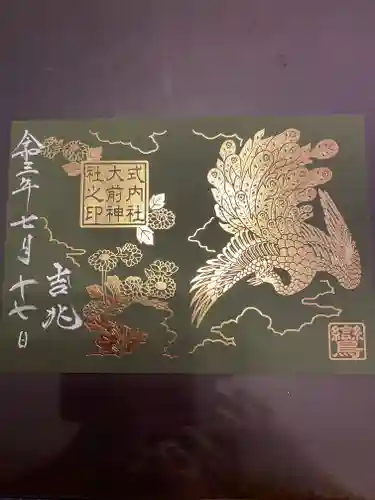 式内社
大前神
社之印
吉兆
令和三年七月十七日
鸞